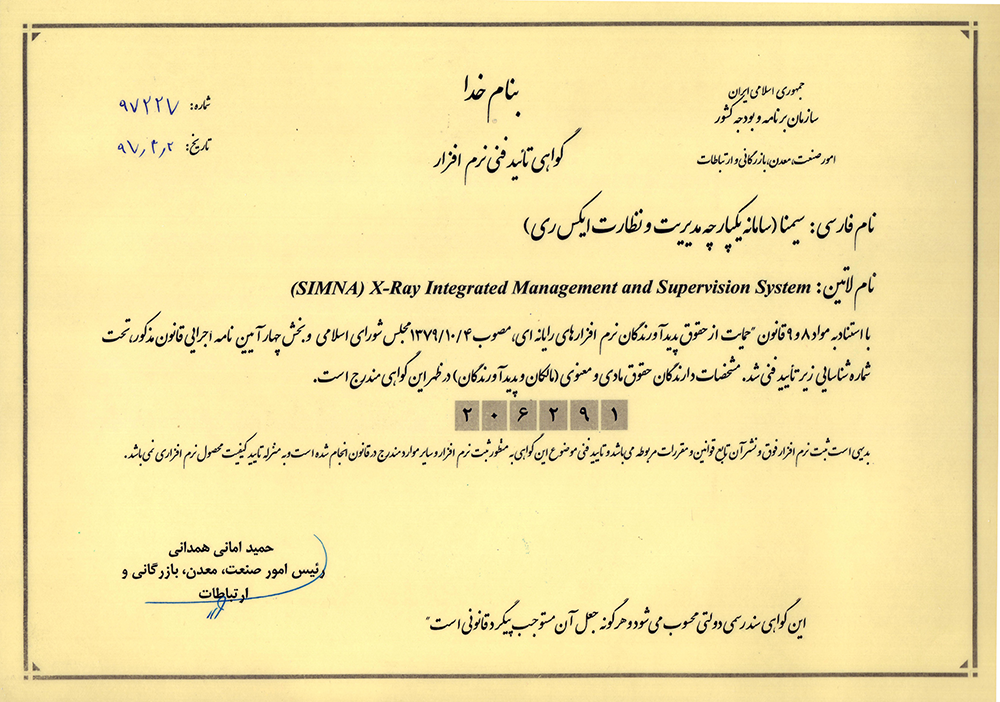 بنام خدا
جمهوری اسلامی ایران
سازمان برنامه و بودجه کشور
امور صنعت، معدن، بازرگانی و ارتباطات
شماره: ۹۷۲۲۷
تاریخ: ۹۷٫۴٫۲
گواهی تأئید فنی نرم افزار
نام فارسی: سیمنا (سامانه یکپارچه مدیریت و نظارت ایکس ری)
نام لاتین: (SIMNA) X-Ray Integrated Management and Supervision System
با استناد به مواد ۸ و ۹ قانون "حمایت از حقوق پدیدآورندگان نرم افزارهای رایانه ای، مصوب ۱۳۷۹/۱۰/۴ مجلس شورای اسلامی و بخش چهار آیین نامه اجرایی قانون مذکور، تحت
شماره شناسایی زیر تأیید فنی شد. مشخصات دارندگان حقوق مادی و معنوی (مالکان و پدیدآورندگان) در ظهر این گواهی مندرج است.
۲۰۶۲۹۱
بدیهی است ثبت نرم افزار فوق و نشر آن تابع قوانین و مقررات مربوطه می‌باشد و تایید فنی موضوع این گواهی به منظور ثبت نرم افزار و سایر موارد مندرج در قانون انجام شده است و به منزله تایید کیفیت محصول نرم افزاری نمی‌باشد.
حمید امانی همدانی
رئیس امور صنعت، معدن، بازرگانی و
ارتباطات
این گواهی سند رسمی دولتی محسوب می‌شود و هرگونه جعل آن مستوجب پیگرد قانونی است"